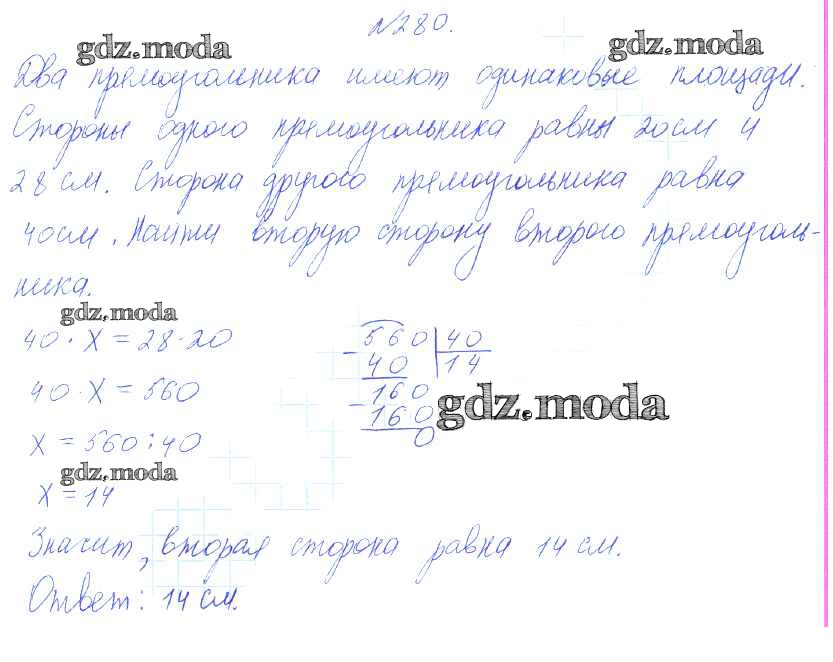 №280.
gdz.moda gdz.moda
Два прямоугольника имеют одинаковые площади.
Стороны одного прямоугольника равны 20см и
28 см. Сторона другого прямоугольника равна
40см. Найти вторую сторону второго прямоуголь-
ника.
gdz.moda
40 · х = 28·20
40 · х = 560
х = 560 : 40
gdz.moda
х = 14
560 | 40
- 40 | 14
160
- 160
0
gdz.moda
Значит, вторая сторона равна 14 см.
Ответ: 14 см.